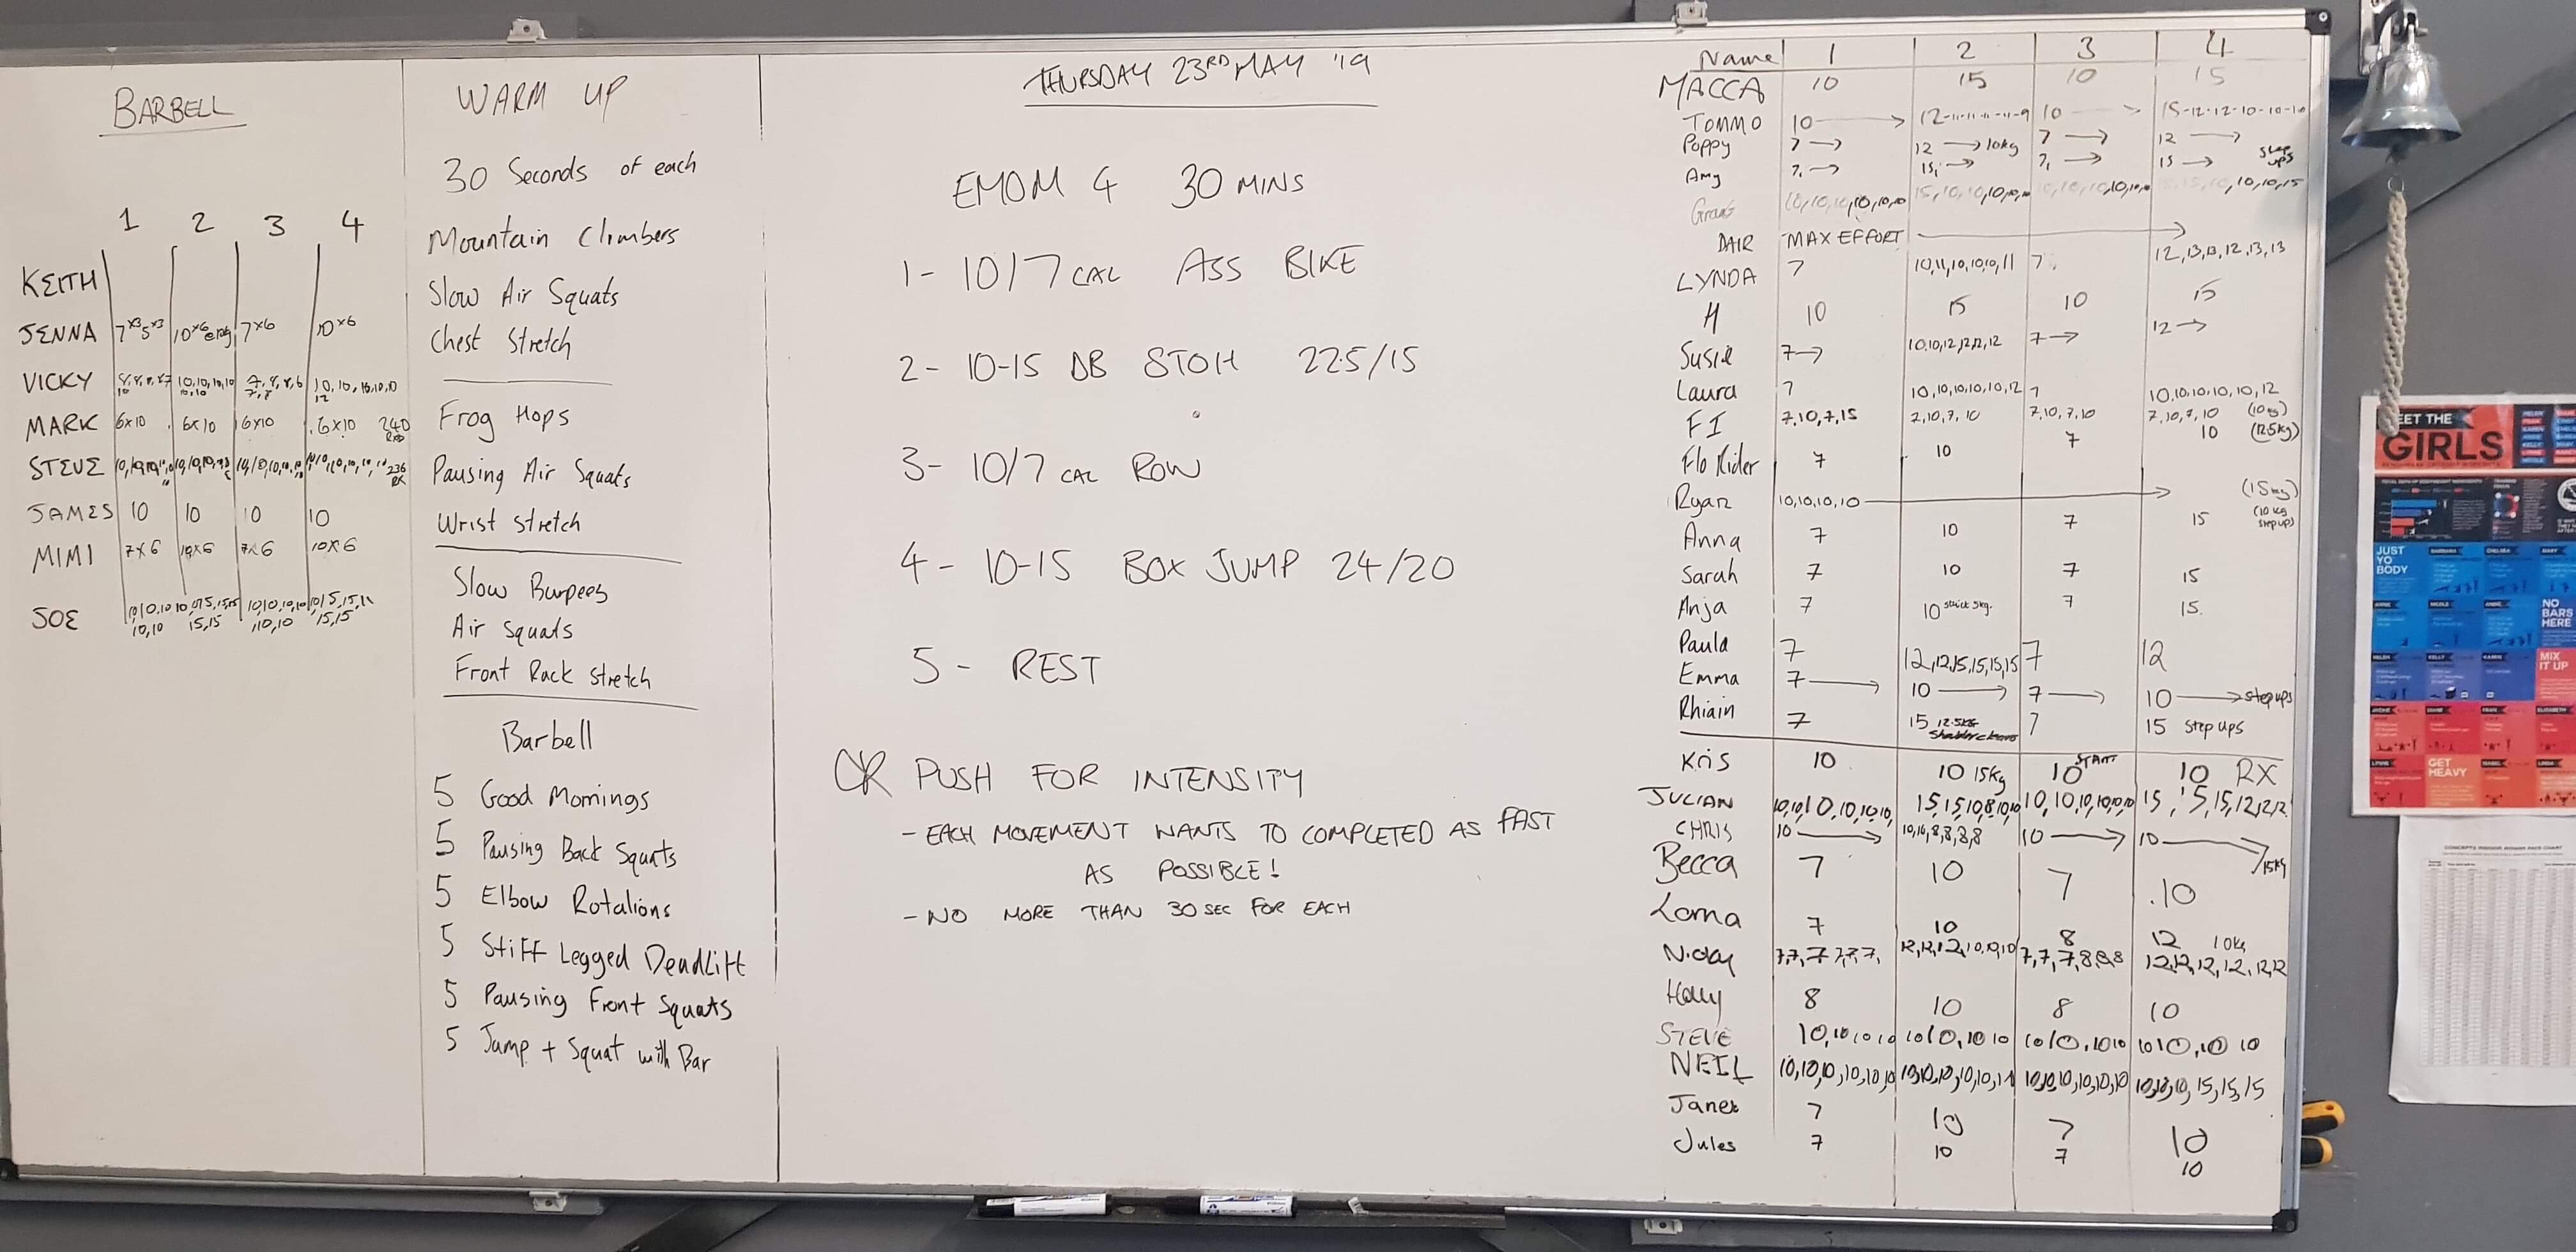 BARBELL
1 2 3 4
KEITH
JENNA 7x3 5x3 10x6 7x6 10x6
VICKY 10,10,10,10
MARK 6x10 6x10 6x10 6x10 240
STEVE 236
JAMES 10 10 10 10
MIMI 7x6 10x6 7x6 10x6
JOE
10,10 15,15 10,10 15,15
WARM UP
30 Seconds of each
Mountain Climbers
Slow Air Squats
Chest Stretch
Frog Hops
Pausing Air Squats
Wrist Stretch
Slow Burpees
Air Squats
Front Rack Stretch
Barbell
5 Good Mornings
5 Pausing Back Squats
5 Elbow Rotations
5 Stiff Legged Deadlift
5 Pausing Front Squats
5 Jump + Squat with Bar
THURSDAY 23RD MAY '19
EMOM 4 30 MINS
1- 10/7 CAL ASS BIKE
2- 10-15 DB STOH 22.5/15
3- 10/7 CAL ROW
4- 10-15 BOX JUMP 24/20
5- REST
OR PUSH FOR INTENSITY
- EACH MOVEMENT WANTS TO COMPLETED AS FAST
AS POSSIBLE!
- NO MORE THAN 30 SEC FOR EACH
Name 1 2 3 4
MACCA 10 15 10 15
TOMMO 10 → 12-11-11-11-11-9 10 → 15-12-12-10-10-10
Poppy 7 → 12 → 10kg 7 → 12 →
Amy 7, → 15, → 7, → 15 → Step ups
10,10,10,10,10,10 15,10,10,10,10,10 10,10,10,10,10,10 15,15,10,10,10,15
DAIR MAX EFFORT →
LYNDA 7 10,11,10,10,10,11 7 12,13,13,12,13,13
H 10 15 10 15
Susie 7 → 10,10,12,12,12,12 7 → 12 →
Laura 7 10,10,10,10,10,12 7 10,10,10,10,10,12
FI 7,10,7,15 7,10,7,10 7,10,7,10 7,10,7,10 (10kg)
Flo Rider 7 10 7 10 (12.5kg)
Ryan 10,10,10,10 → (15kg)
Anna 7 10 7 15 (10kg step ups)
Sarah 7 10 7 15
Anja 7 10 strict 5kg. 7 15.
Paula 7 12,12,15,15,15,15 7 12
Emma 7 → 10 → 7 → 10 → step ups
Rhiain 7 15 12.5KG 7 15 step ups
Kris 10 10 15kg 10 START 10 RX
JULIAN 10,10,10,10,10,10, 15,15,10,8,10,10 10,10,10,10,10,10 15,15,15,12,12,12
CHRIS 10 → 10,10,8,8,8,8 10 → 10 → 15kg
Becca 7 10 7 10
Lorna 7 10 8 12 10kg
Nicky 7,7,7,7,7,7, 12,12,12,10,10,10 7,7,7,8,8,8 12,12,12,12,12,12
Holly 8 10 8 10
STEVE 10,10 10 10 10 10,10 10 10 10,10 10 10 10,10 10
NEIL 10,10,10,10,10,10 10,10,10,10,10,11 10,10,10,10,10,10 10,10,10,15,15,15
Janex 7 10 7 10
Jules 7 10 7 10
MEET THE
GIRLS
JUST
YO
BODY
NO
BARS
HERE
MIX
IT UP
GET
HEAVY